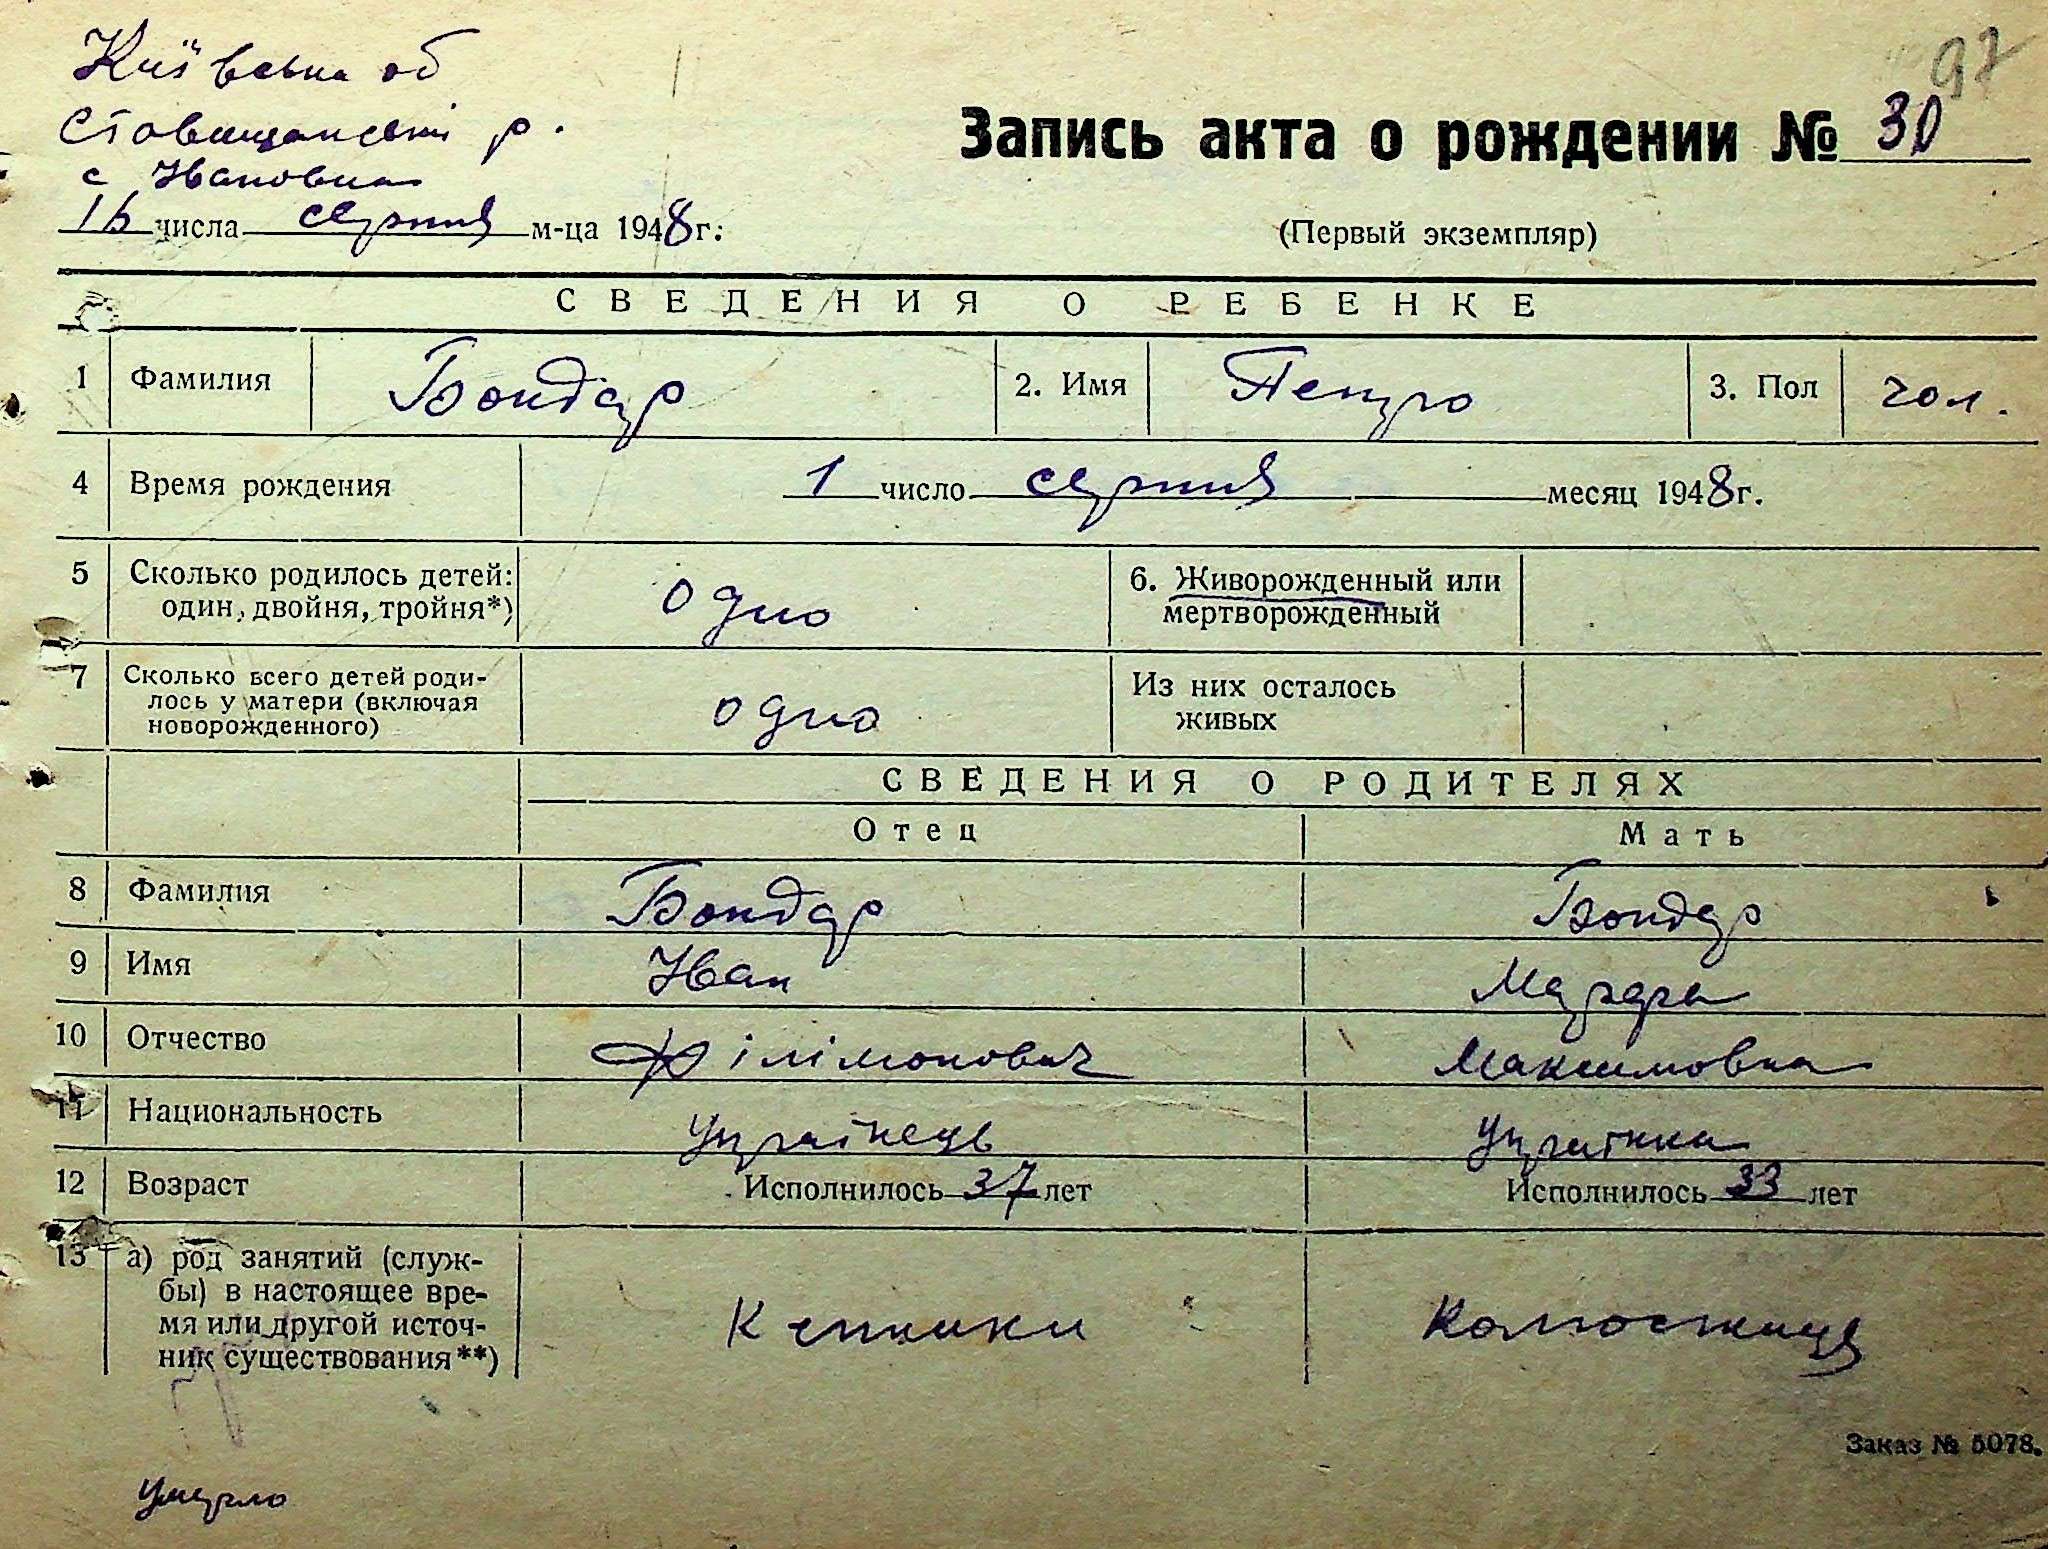 Київська об
Ставищанський р.
с Івановка
97
Запись акта о рождении № 30
16 числа серпня м-ца 1948 г.
(Первый экземпляр)
СВЕДЕНИЯ О РЕБЕНКЕ
1 Фамилия Бондар 2. Имя Петро 3. Пол чол.
4 Время рождения 1 число серпня месяц 1948 г.
5 Сколько родилось детей: один, двойня, тройня*) одно 6. Живорожденный или мертворожденный
7 Сколько всего детей родилось у матери (включая новорожденного) одно Из них осталось живых
СВЕДЕНИЯ О РОДИТЕЛЯХ
Отец Мать
8 Фамилия Бондар Бондар
9 Имя Іван
10 Отчество Філімонович Максимовна
11 Национальность українець українка
12 Возраст Исполнилось 37 лет Исполнилось 33 лет
13 а) род занятий (служ-
бы) в настоящее вре-
мя или другой источ-
ник существования**) Колгоспниця
Заказ № 5078.
умерло